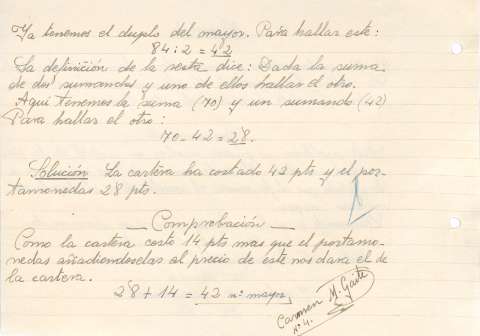 Ya tenemos el duplo del mayor. Para hallar este:
84 : 2 = 42
La definición de la resta dice: Dada la suma
de dos sumandos y uno de ellos hallar el otro.
Aquí tenemos la suma (70) y un sumando (42)
Para hallar el otro:
70 - 42 = 28.
Solución La cartera ha costado 42 pts y el por-
tamonedas 28 pts.
— Comprobación —
Como la cartera costo 14 pts mas que el portamo-
nedas añadiendoselas al precio de este nos dara el de
la cartera.
28 + 14 = 42 nº mayor
Carmen M. Gaite
nº 4.